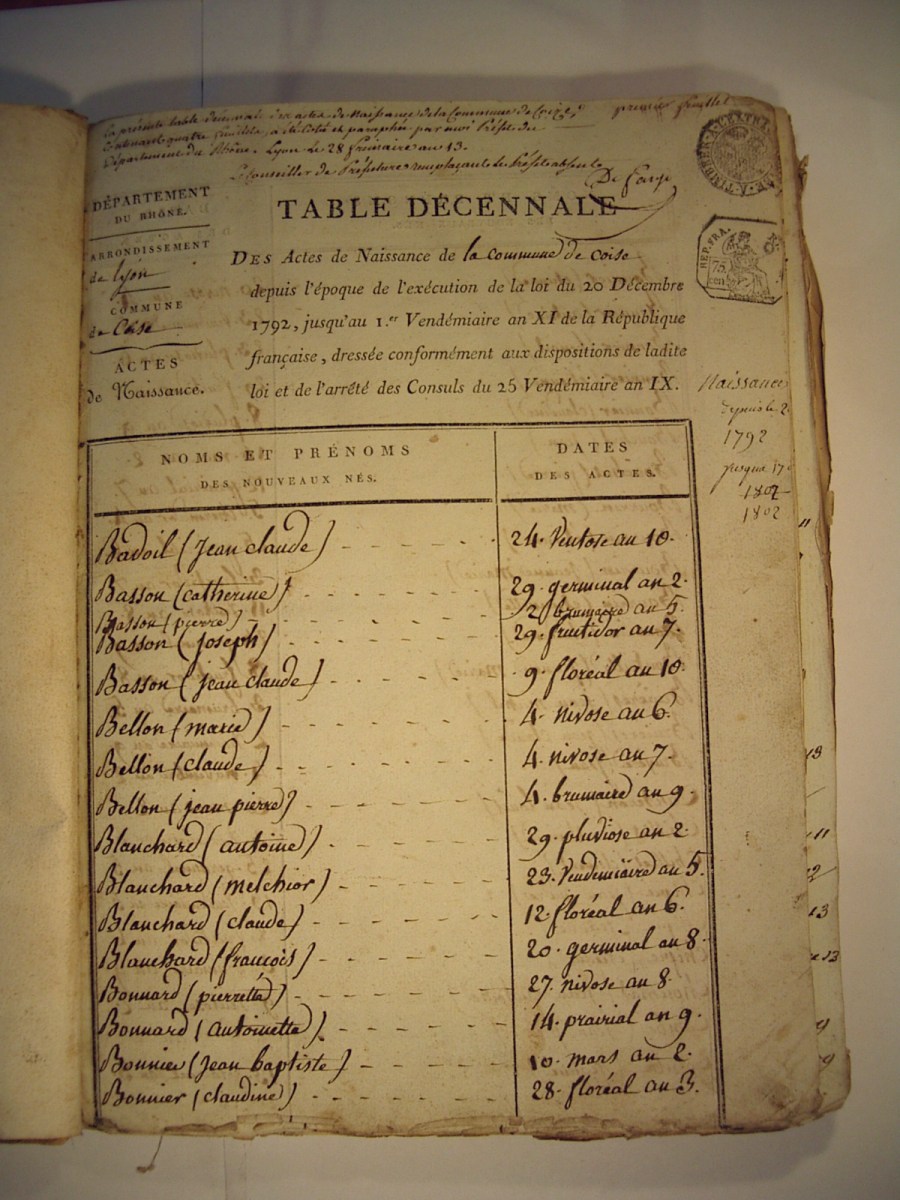 la présente table décennale des actes de Naissance de la Commune de Coize,
Contenant quatre feuillets, a été cotée et paraphée par moi Préfet du
Département du Rhône. Lyon le 28 frimaire an 13.
Le Conseiller de Préfecture remplaçant le Préfet absent
premier feuillet
TIMBRE
DÉPARTEMENT
DU RHÔNE.
ARRONDISSEMENT
de Lyon
COMMUNE
de Coise
ACTES
de Naissance.
TABLE DÉCENNALE
DES Actes de Naissance de la Commune de Coise
depuis l'époque de l'exécution de la loi du 20 Décembre
1792, jusqu'au 1.er Vendémiaire an XI de la République
française, dressée conformément aux dispositions de ladite
loi et de l'arrêté des Consuls du 25 Vendémiaire an IX.
REP. FRA.
75
Naissances
depuis le 2
1792
jusqu'a 17
1802
1802
NOMS ET PRÉNOMS
DES NOUVEAUX NÉS.
DATES
DES ACTES.
Badoil (jean claude) 24. Ventose an 10.
Basson (catherine) 29. germinal an 2.
Basson (pierre) brumaire an 5.
Basson (joseph) 29. fructidor an 7.
Basson (jean claude) 9. floréal an 10.
Bellon (marie) 4. nivose an 6.
Bellon (claude) 4. nivose an 7.
Bellon (jean pierre) 4. brumaire an 9.
Blanchard (antoine) 29. pluviose an 2.
Blanchard (melchior) 23. Vendemiaire an 5.
Blanchard (claude) 12. floréal an 6.
Blanchard (francois) 20. germinal an 8.
Bonnard (pierrette) 27. nivose an 8.
Bonnard (antoinette) 14. prairial an 9.
Bonnier (jean baptiste) 10. mars an 2.
Bonnier (claudine) 28. floréal an 3.